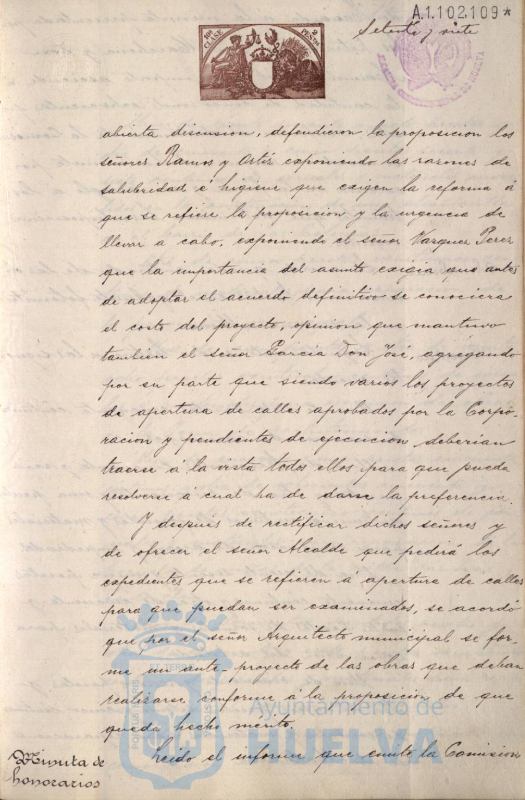 A.1.102.109*
Setenta y siete
10ª CLASE
2 PESETAS
abierta discusion, defendieron la proposicion los
señores Ramos y Ortiz exponiendo las razones de
salubridad é higiene que exigen la reforma á
que se refiere la proposicion y la urgencia de
llevar á cabo, exponiendo el señor Vazquez Perez
que la importancia del asunto exigia que antes
de adoptar el acuerdo definitivo se conociera
el costo del proyecto, opinion que mantuvo
tambien el señor Garcia Don José, agregando
por su parte que siendo varios los proyectos
de apertura de calles aprobados por la Corpo-
racion y pendientes de ejecucion deberian
traerse á la vista todos ellos para que pueda
resolverse á cual ha de darse la preferencia.
Y despues de rectificar dichos señores y
de ofrecer el señor Alcalde que pedirá los
expedientes que se refieren á apertura de calles
para que puedan ser examinados, se acordó
que por el señor Arquitecto municipal se for-
me un ante-proyecto de las obras que deban
realizarse conforme á la proposicion de que
queda hecho mérito.
Minuta de
honorarios
Leido el informe que emite la Comision
Ayuntamiento de
HUELVA